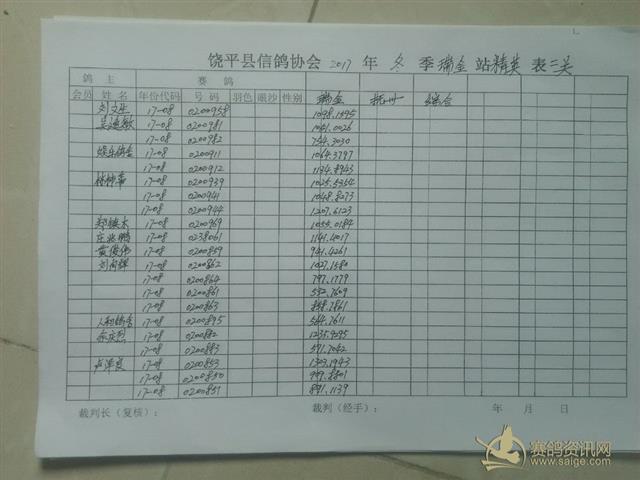 饶平县信鸽协会 2017 年 冬 季 瑞金 站 精英 表 二关
鸽 主 赛 鸽
会员 姓 名 年份代码 号 码 羽色 眼沙 性别 瑞金 抚州 综合
刘文生 17-08 0200958 1098.1595
17-08 0200981 1041.0026
17-08 0200982 754.3030
娱乐鸽舍 17-08 0200911 1064.3797
17-08 0200912 1134.8943
17-08 0200939 1025.5354
17-08 0200941 1048.8273
17-08 0200944 1207.6123
17-08 0200969 1055.0184
庄兆鹏 17-08 0238061 1141.4017
黄俊伟 17-08 0200859 941.4261
17-08 0200862 1027.1580
17-08 0200864 797.1779
17-08 0200861 592.7609
17-08 0200863
人和鸽舍 17-08 0200895 564.7611
余庆烈 17-08 0200882 1235.9295
17-08 0200883 591.7042
卢泽良 17-08 0200853 1303.1943
17-08 0200850
17-08 0200851 891.1139
裁判长（复核）： 裁判（经手）： 年 月 日
赛鸽资讯网
www.saige.com